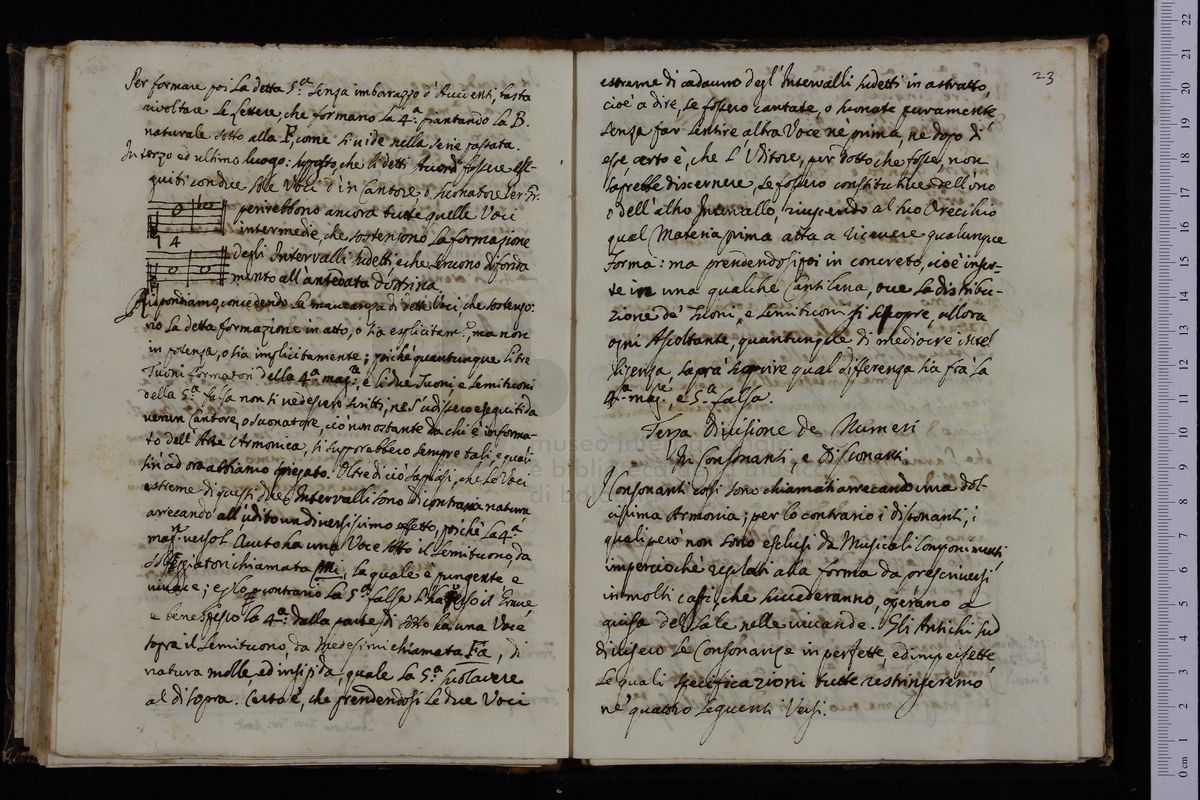 Per formare poi la detta 5.ª senza imbarazzo d'Accenti, basta
rivoltare le lettere, che formano la 4.ª piantando la B.
naturale sotto alla F, come si vide nella serie passata.
In terzo ed ultimo luogo: supposto, che li detti Accordi fossero ese-
quiti con due sole Voci d'un Cantore, o suonatore
perirebbono ancora tutte quelle Voci
intermedie, che sostengono la formazione
degli Intervalli sudetti e che servono di fonda
mento all'antedata dottrina.
Rispondiamo, concedendo la mancanza di dette Voci, che sostengo-
no la detta formazione in atto, o sia esplicitam.e, ma non
in potenza, o sia implicitamente; poiché quantunque li tre
Tuoni formatori della 4.ª mag.e, e li due Tuoni e Semituoni
della 5.ª falsa non si vedessero scritti, nè s'udissero eseguiti da
verun Cantore, o suonatore, ciò non ostante da chi è informa-
to dell'Arte Armonica, si supporrebbero sempre tali e quali
sin ad ora abbiamo spiegato. Oltre di ciò sappiasi, che le Voci
estreme di questi due Intervalli sono di contraria natura
arrecando all'udito un diversissimo effetto, poiché la 4.ª
mag.e verso l'Acuto ha una Voce sotto il Semituono, da
Solfeggiatori chiamata Mi, la quale è pungente e
vivace; e per lo contrario la 5.ª falsa verso il Grave,
e bene spesso la 4.ª dalla parte di sotto ha una Voce
sopra il Semituono, da medesimi chiamata Fa, di
natura molle ed insipida, quale la 5.ª
al di sopra. Certo è, che prendendosi le due Voci
23
estreme di cadauno degl'Intervalli sudetti in astratto,
cioè a dire, se fossero cantate, o suonate puramente
senza far sentire altra Voce nè prima, ne dopo di
esse certo è, che l'Uditore, per dotto che fosse, non
saprebbe discernere, se fossero constitutive dell'uno
o dell'altro Intervallo, riuscendo al suo Orecchio
qual Materia prima atta a ricevere qualunque
forma: ma prendendosi poi in concreto, cioè inser-
te in una qualche Cantilena, ove la distribu-
zione de' Tuoni, e Semituoni si scopre, allora
ogni Ascoltante, quantunque di mediocre intel-
ligenza saprà scoprire qual differenza sia frà la
4.ª mag.e, e 5.ª falsa.
Terza divisione de Numeri
In Consonanti, e Dissonanti.
I Consonanti così sono chiamati arrecando una dol-
cissima Armonia; per lo contrario i dissonanti, i
quali però non sono esclusi da Musicali Componimenti
imperciochè regolati alla forma da prescriversi
in molti casi, che succederanno, operano a
guisa del Sale nelle vivande. Gli Antichi sud
divisero le Consonanze in perfette, ed imperfette
le quali specificazioni tutte restringeremo
nè quattro seguenti Versi.